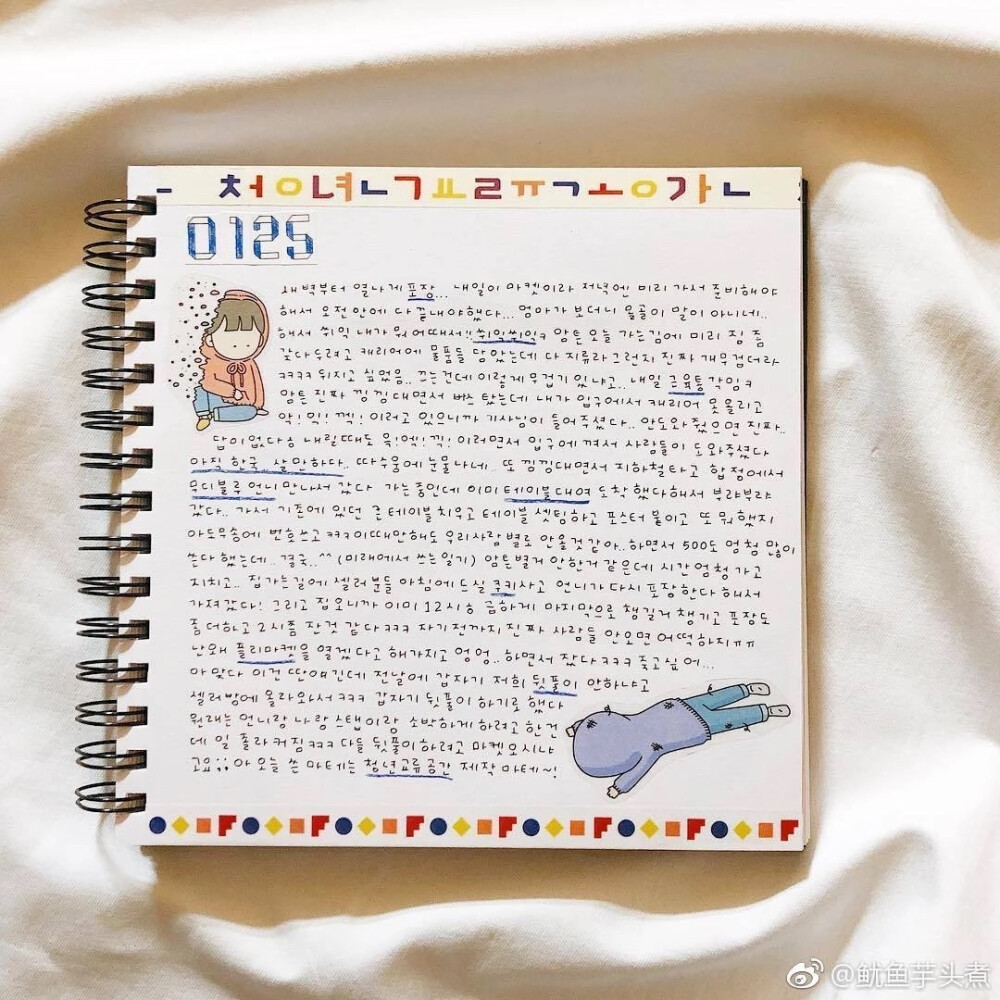 - 처ㅇ녀ㄴㄱㅛㄹㅠㄱㅗㅇ가ㄴ
0125
새벽부터 열나게 포장... 내일이 마켓이라 저녁엔 미리 가서 준비해야
해서 오전 안에 다 끝내야했다... 엄마가 보더니 얼굴이 말이 아니네..
해서 쒸익 내가 뭐 어때서!! 쒸익쒸익ㅋ 암튼 오늘 가는김에 미리 짐 좀
갖다두려고 캐리어에 물품들 담았는데 다 지류라 그런지 진짜 개무겁더라
ㅋㅋㅋㅋ 뒤지고 싶었음.. 끄는건데 이렇게 무겁기 있냐고.. 내일 근육통 각임ㅋ
암튼 진짜 낑낑대면서 버스 탔는데 내가 입구에서 캐리어 못올리고
악! 익! 꺽! 이러고 있으니까 기사님이 들어주셨다.. 안도와줬으면 진짜..
답이없다ㅎ 내릴때도 윽!엑!끽! 이러면서 입구에 껴서 사람들이 도와주셨다
아직 한국.. 살만하다.. 따수움에 눈물나네.. 또 낑낑대면서 지하철 타고 합정에서
무디블루 언니 만나서 갔다 가는중인데 이미 테이블대여 도착했다해서 부랴부랴
갔다.. 가서 기존에 있던 큰 테이블 치우고 테이블 셋팅하고 포스터 붙이고 또 뭐 했지
아 도무송에 번호쓰고 ㅋㅋ 이때만해도 우리 사람 별로 안올것같아.. 하면서 500도 엄청 많이
쓴다 했는데.. 결국.. ^^ (미래에서 쓰는 일기) 암튼 별거 안한거 같은데 시간 엄청 가고
지치고.. 집가는길에 셀러분들 아침에 드실 쿠키사고 언니가 다시 포장한다 해서
가져갔다! 그리고 집오니까 이미 12시ㅎ 급하게 마지막으로 챙길거 챙기고 포장도
좀 더하고 2시쯤 잔것 같다 ㅋㅋㅋ 자기 전까지 진짜 사람들 안오면 어떡하지ㅠㅠ
난 왜 플리마켓을 열겠다고 해가지고 엉엉.. 하면서 잤다ㅋㅋㅋ 죽고싶어...
아 맞다 이건 딴얘긴데 전날에 갑자기 저희 뒷풀이 안하냐고
셀러방에 올라와서 ㅋㅋㅋ 갑자기 뒷풀이 하기로 했다
원래는 언니랑 나랑 스탭이랑 소박하게 하려고 한건
데 일 졸라 커짐ㅋㅋㅋ 다들 뒷풀이하려고 마켓 오시냐
고요;; 아 오늘 쓴 마테는 청년교류공간 제작 마테~!
@鱿鱼芋头煮